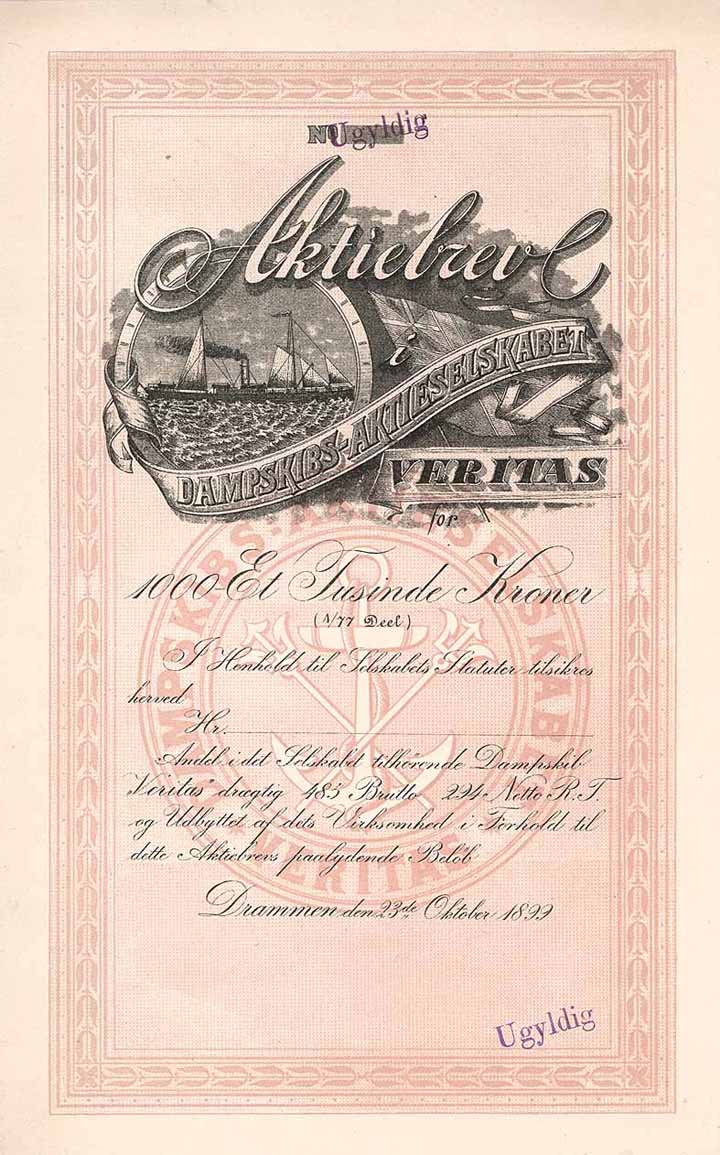 No Ugyldig
Aktiebrev
i
DAMPSKIBS-AKTIESELSKABET
VERITAS
for
1000-Et Tusinde Kroner
(1/77 Deel)
I Henhold til Selskabets Statuter tilsikres
herved
Hr.
Andel i det Selskabet tilhörende Dampskib
"Veritas" drægtig 483 Brutto 294 Netto R.T.
og Udbyttet af dets Virksomhed i Forhold til
dette Aktiebrevs paalydende Belöb
Drammen den 23de Oktober 1899
DAMPSKIBS-AKTIESELSKABET
VERITAS
Ugyldig